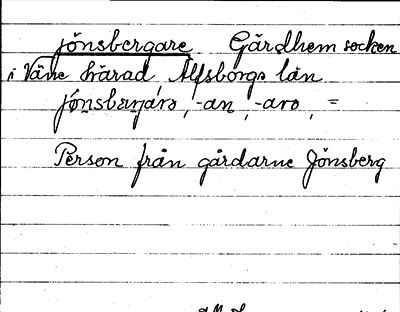 jönsbergare Gärdhem socken
i Väne härad, Älfsborgs län
-an, -aro, =
Person från gårdarne Jönsberg